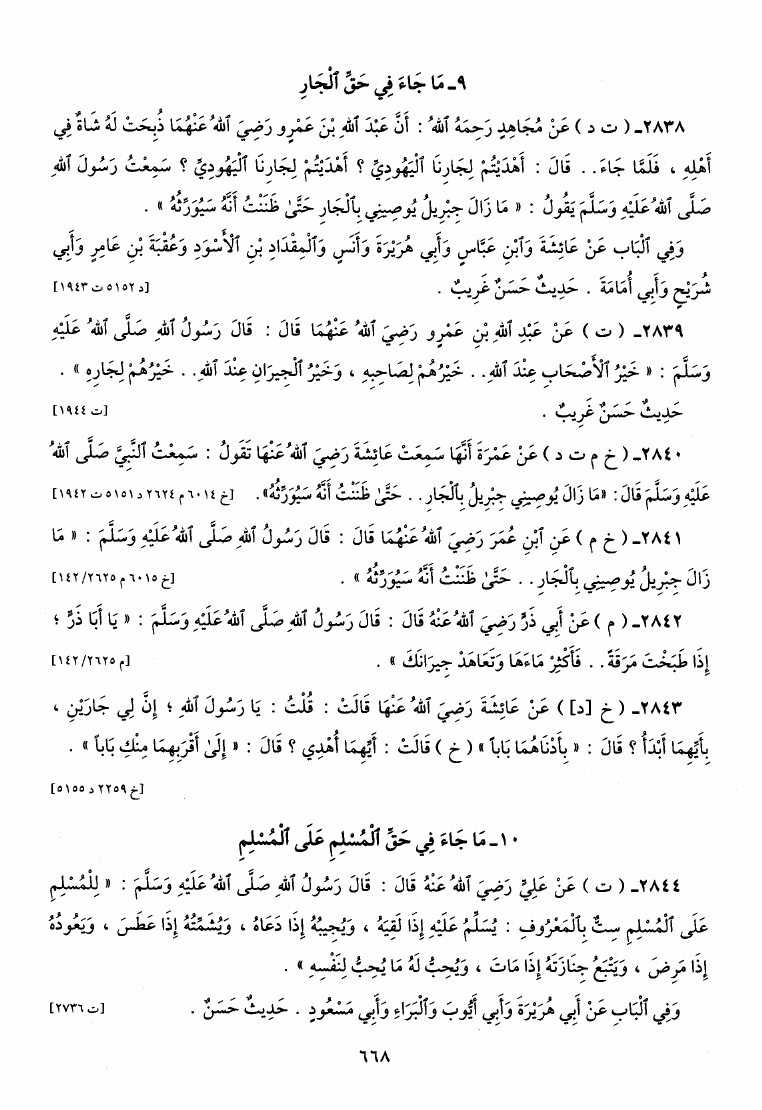 ٩ـ مَا جَاءَ فِي حَقِّ ٱلْجَارِ
٢٨٣٨ـ ( ت د ) عَنْ مُجَاهِدٍ رَحِمَهُ ٱللهُ : أَنَّ عَبْدَ ٱللهِ بْنَ عَمْرٍو رَضِيَ ٱللهُ عَنْهُمَا ذُبِحَتْ لَهُ شَاةٌ فِي
أَهْلِهِ ، فَلَمَّا جَاءَ. . قَالَ : أَهْدَيْتُمْ لِجَارِنَا ٱلْيَهُودِيِّ ؟ أَهْدَيْتُمْ لِجَارِنَا ٱلْيَهُودِيِّ ؟ سَمِعْتُ رَسُولَ ٱللهِ
صَلَّى ٱللهُ عَلَيْهِ وَسَلَّمَ يَقُولُ : « مَا زَالَ جِبْرِيلُ يُوصِينِي بِٱلْجَارِ حَتَّىٰ ظَنَنْتُ أَنَّهُ سَيُوَرِّثُهُ » .
وَفِي ٱلْبَابِ عَنْ عَائِشَةَ وَٱبْنِ عَبَّاسٍ وَأَبِي هُرَيْرَةَ وَأَنَسٍ وَٱلْمِقْدَادِ بْنِ ٱلْأَسْوَدِ وَعُقْبَةَ بْنِ عَامِرٍ وَأَبِي
شُرَيْحٍ وَأَبِي أُمَامَةَ . حَدِيثٌ حَسَنٌ غَرِيبٌ . [د ٥١٥٢ ت ١٩٤٣]
٢٨٣٩ـ ( ت ) عَنْ عَبْدِ ٱللهِ بْنِ عَمْرٍو رَضِيَ ٱللهُ عَنْهُمَا قَالَ : قَالَ رَسُولُ ٱللهِ صَلَّى ٱللهُ عَلَيْهِ
وَسَلَّمَ : « خَيْرُ ٱلْأَصْحَابِ عِنْدَ ٱللهِ. . خَيْرُهُمْ لِصَاحِبِهِ ، وَخَيْرُ ٱلْجِيرَانِ عِنْدَ ٱللهِ. . خَيْرُهُمْ لِجَارِهِ » .
حَدِيثٌ حَسَنٌ غَرِيبٌ . [ت ١٩٤٤]
٢٨٤٠ـ ( خ م ت د ) عَنْ عَمْرَةَ أَنَّهَا سَمِعَتْ عَائِشَةَ رَضِيَ ٱللهُ عَنْهَا تَقُولُ : سَمِعْتُ ٱلنَّبِيَّ صَلَّى ٱللهُ
عَلَيْهِ وَسَلَّمَ قَالَ : «مَا زَالَ يُوصِينِي جِبْرِيلُ بِٱلْجَارِ. . حَتَّىٰ ظَنَنْتُ أَنَّهُ سَيُوَرِّثُهُ». [خ ٦٠١٤ م ٢٦٢٤ د ٥١٥١ ت ١٩٤٢]
٢٨٤١ـ ( خ م ) عَنِ ٱبْنِ عُمَرَ رَضِيَ ٱللهُ عَنْهُمَا قَالَ : قَالَ رَسُولُ ٱللهِ صَلَّى ٱللهُ عَلَيْهِ وَسَلَّمَ : « مَا
زَالَ جِبْرِيلُ يُوصِينِي بِٱلْجَارِ. . حَتَّىٰ ظَنَنْتُ أَنَّهُ سَيُوَرِّثُهُ » . [خ ٦٠١٥ م ٢٦٢٥/١٤٢]
٢٨٤٢ـ ( م ) عَنْ أَبِي ذَرٍّ رَضِيَ ٱللهُ عَنْهُ قَالَ : قَالَ رَسُولُ ٱللهِ صَلَّى ٱللهُ عَلَيْهِ وَسَلَّمَ : « يَا أَبَا ذَرٍّ ؛
إِذَا طَبَخْتَ مَرَقَةً. . فَأَكْثِرْ مَاءَهَا وَتَعَاهَدْ جِيرَانَكَ » . [م ٢٦٢٥/١٤٢]
٢٨٤٣ـ ( خ [د] ) عَنْ عَائِشَةَ رَضِيَ ٱللهُ عَنْهَا قَالَتْ : قُلْتُ : يَا رَسُولَ ٱللهِ ؛ إِنَّ لِي جَارَيْنِ ،
بِأَيِّهِمَا أَبْدَأُ ؟ قَالَ : « بِأَدْنَاهُمَا بَاباً » ( خ ) قَالَتْ : أَيِّهِمَا أُهْدِي ؟ قَالَ : « إِلَىٰ أَقْرَبِهِمَا مِنْكِ بَاباً » .
[خ ٢٢٥٩ د ٥١٥٥]
١٠ـ مَا جَاءَ فِي حَقِّ ٱلْمُسْلِمِ عَلَى ٱلْمُسْلِمِ
٢٨٤٤ـ ( ت ) عَنْ عَلِيٍّ رَضِيَ ٱللهُ عَنْهُ قَالَ : قَالَ رَسُولُ ٱللهِ صَلَّى ٱللهُ عَلَيْهِ وَسَلَّمَ : « لِلْمُسْلِمِ
عَلَى ٱلْمُسْلِمِ سِتٌّ بِٱلْمَعْرُوفِ : يُسَلِّمُ عَلَيْهِ إِذَا لَقِيَهُ ، وَيُجِيبُهُ إِذَا دَعَاهُ ، وَيُشَمِّتُهُ إِذَا عَطَسَ ، وَيَعُودُهُ
إِذَا مَرِضَ ، وَيَتْبَعُ جِنَازَتَهُ إِذَا مَاتَ ، وَيُحِبُّ لَهُ مَا يُحِبُّ لِنَفْسِهِ » .
وَفِي ٱلْبَابِ عَنْ أَبِي هُرَيْرَةَ وَأَبِي أَيُّوبَ وَٱلْبَرَاءِ وَأَبِي مَسْعُودٍ . حَدِيثٌ حَسَنٌ . [ت ٢٧٣٦]
٦٦٨